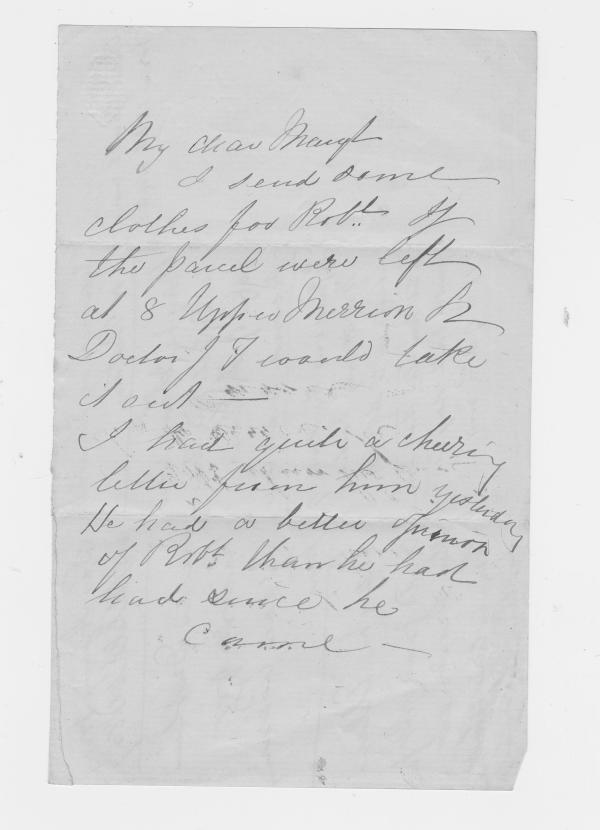 My dear Margt
I send some
clothes for Robt. If
the parcel were left
at 8 Upper Merrion St
Doctor J T would take
it out —
I had quite a cheering
letter from him yesterday
He had a better opinion
of Robt. than he had
had since he
came —